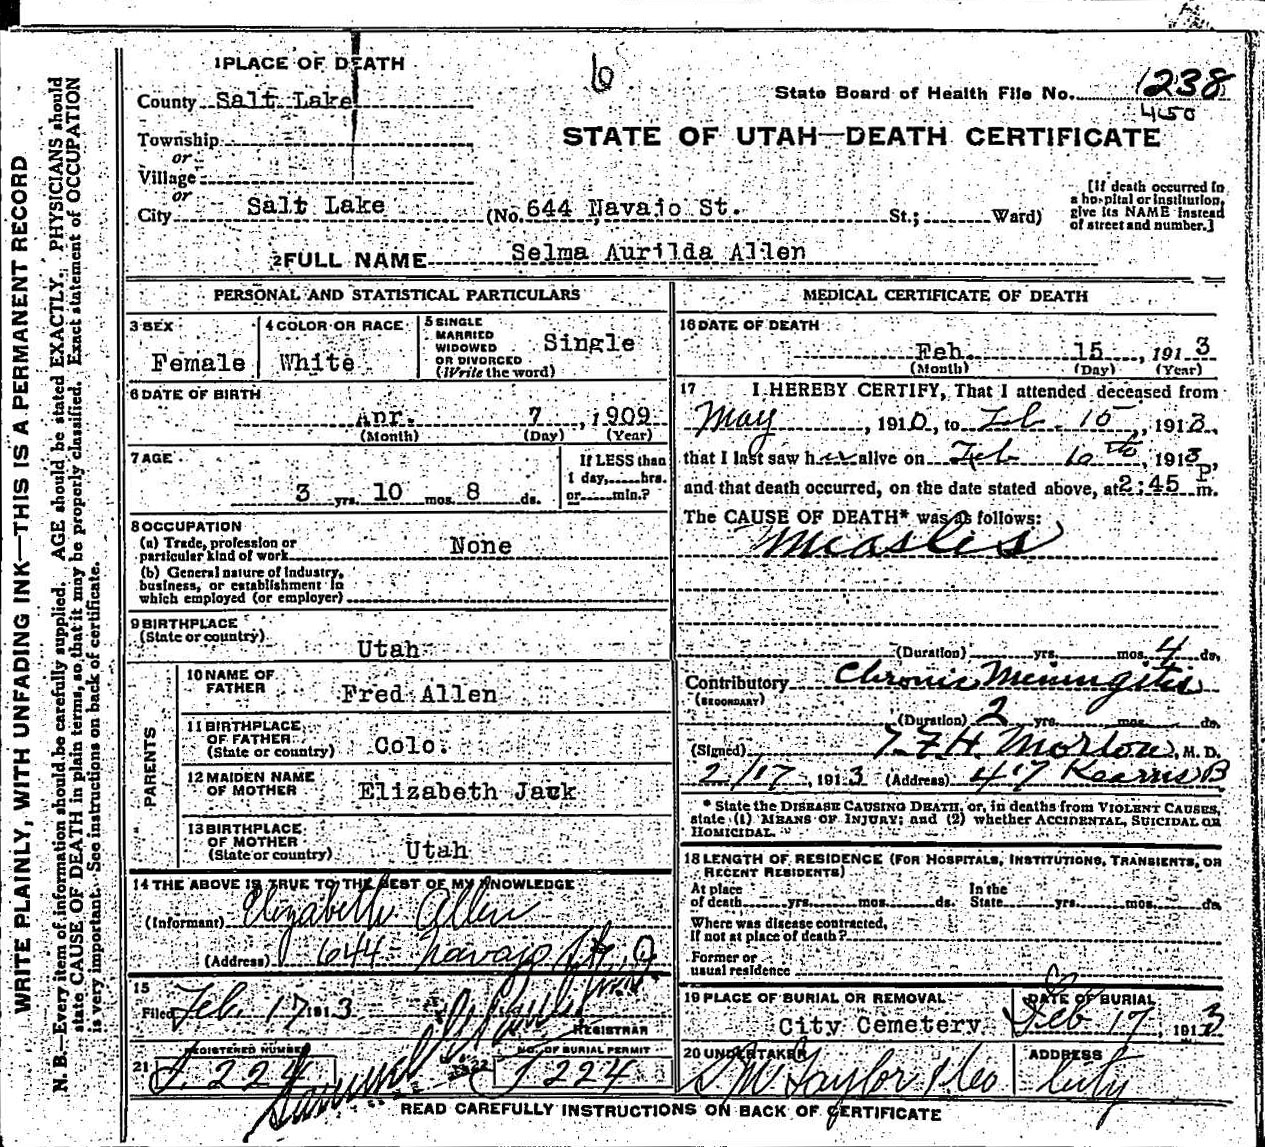 WRITE PLAINLY, WITH UNFADING INK—THIS IS A PERMANENT RECORD
N. B.—Every item of information should be carefully supplied. AGE should be stated EXACTLY. PHYSICIANS should
state CAUSE OF DEATH in plain terms, so that it may be properly classified. Exact statement of OCCUPATION
is very important. See instructions on back of certificate.
1 PLACE OF DEATH
6
County Salt Lake
State Board of Health File No. 1238
450
Township
or
Village
or
STATE OF UTAH—DEATH CERTIFICATE
City Salt Lake (No. 644 Navajo St. St.; Ward)
[If death occurred in
a hospital or institution,
give its NAME instead
of street and number.]
2 FULL NAME Selma Aurilda Allen
PERSONAL AND STATISTICAL PARTICULARS
3 SEX
Female
4 COLOR OR RACE
White
5 SINGLE
MARRIED
WIDOWED
OR DIVORCED
(Write the word)
Single
6 DATE OF BIRTH
Apr. 7, 1909
(Month) (Day) (Year)
7 AGE
3 yrs. 10 mos. 8 ds.
If LESS than
1 day, hrs.
or min.?
8 OCCUPATION
(a) Trade, profession or
particular kind of work None
(b) General nature of industry,
business, or establishment in
which employed (or employer)
9 BIRTHPLACE
(State or country)
Utah
PARENTS
10 NAME OF
FATHER Fred Allen
11 BIRTHPLACE
OF FATHER
(State or country) Colo.
12 MAIDEN NAME
OF MOTHER Elizabeth Jack
13 BIRTHPLACE
OF MOTHER
(State or country) Utah
14 THE ABOVE IS TRUE TO THE BEST OF MY KNOWLEDGE
(Informant) Elizabeth Allen
(Address) 644 Navajo St.
15
Filed Feb. 17 1913
REGISTRAR
21 REGISTERED NUMBER
J. 224
NO. OF BURIAL PERMIT
J 224
MEDICAL CERTIFICATE OF DEATH
16 DATE OF DEATH
Feb. 15, 1913
(Month) (Day) (Year)
17 I HEREBY CERTIFY, That I attended deceased from
May, 1910, to Feb. 15, 1913,
that I last saw her alive on Feb 10th, 1913,
and that death occurred, on the date stated above, at 2:45 P m.
The CAUSE OF DEATH* was as follows:
Measles
(Duration) yrs. mos. 4 ds.
Contributory Chronic Meningitis
(SECONDARY)
(Duration) 2 yrs. mos. ds.
(Signed) T. F. H. Morton, M. D.
2/17, 1913 (Address) 417 Kearns B
* State the DISEASE CAUSING DEATH, or, in deaths from VIOLENT CAUSES,
state (1) MEANS OF INJURY; and (2) whether ACCIDENTAL, SUICIDAL OR
HOMICIDAL.
18 LENGTH OF RESIDENCE (FOR HOSPITALS, INSTITUTIONS, TRANSIENTS, OR
RECENT RESIDENTS)
At place
of death yrs. mos. ds.
In the
State yrs. mos. ds.
Where was disease contracted,
If not at place of death?
Former or
usual residence
19 PLACE OF BURIAL OR REMOVAL
City Cemetery
DATE OF BURIAL
Feb 17, 1913
20 UNDERTAKER
S. M. Taylor & Co
ADDRESS
City
READ CAREFULLY INSTRUCTIONS ON BACK OF CERTIFICATE